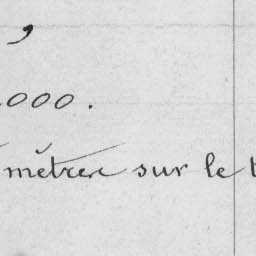 ,
000.
mètres sur le